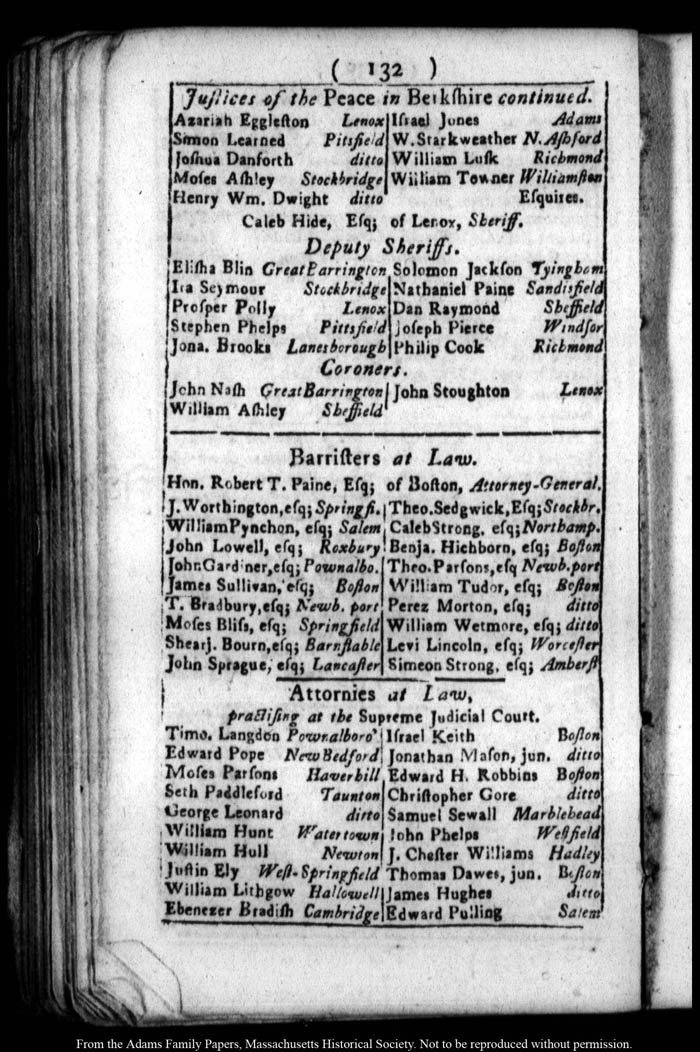 ( 132 )
Juſtices of the Peace in Berkſhire continued.
Azariah Eggleſton Lenox
Simon Learned Pittsfield
Joſhua Danforth ditto
Moſes Aſhley Stockbridge
Henry Wm. Dwight ditto
Iſrael Jones Adams
W. Starkweather N. Aſhford
William Luſk Richmond
William Towner Williamſton
Eſquires.
Caleb Hide, Eſq; of Lenox, Sheriff.
Deputy Sheriffs.
Eliſha Blin Great Barrington
Ira Seymour Stockbridge
Proſper Polly Lenox
Stephen Phelps Pittsfield
Jona. Brooks Lanesborough
Solomon Jackſon Tyingham
Nathaniel Paine Sandisfield
Dan Raymond Sheffield
Joſeph Pierce Windſor
Philip Cook Richmond
Coroners.
John Naſh Great Barrington
William Aſhley Sheffield
John Stoughton Lenox
Barriſters at Law.
Hon. Robert T. Paine, Eſq; of Boſton, Attorney-General.
J. Worthington, eſq; Springfi.
William Pynchon, eſq; Salem
John Lowell, eſq; Roxbury
John Gardiner, eſq; Pownalbo.
James Sullivan, eſq; Boſton
T. Bradbury, eſq; Newb. port
Moſes Bliſs, eſq; Springfield
Shearj. Bourn, eſq; Barnſtable
John Sprague, eſq; Lancaſter
Theo. Sedgwick, Eſq; Stockbr.
Caleb Strong, eſq; Northamp.
Benja. Hichborn, eſq; Boſton
Theo. Parſons, eſq Newb. port
William Tudor, eſq; Boſton
Perez Morton, eſq; ditto
William Wetmore, eſq; ditto
Levi Lincoln, eſq; Worceſter
Simeon Strong, eſq; Amherſt
Attornies at Law,
practiſing at the Supreme Judicial Court.
Timo. Langdon Pownalboro'
Edward Pope New Bedford
Moſes Parſons Haverhill
Seth Paddleford Taunton
George Leonard ditto
William Hunt Watertown
William Hull Newton
Juſtin Ely Weſt-Springfield
William Lithgow Hallowell
Ebenezer Bradiſh Cambridge
Iſrael Keith Boſton
Jonathan Maſon, jun. ditto
Edward H. Robbins Boſton
Chriſtopher Gore ditto
Samuel Sewall Marblehead
John Phelps Weſtfield
J. Cheſter Williams Hadley
Thomas Dawes, jun. Boſton
James Hughes ditto
Edward Pulling Salem
From the Adams Family Papers, Massachusetts Historical Society. Not to be reproduced without permission.